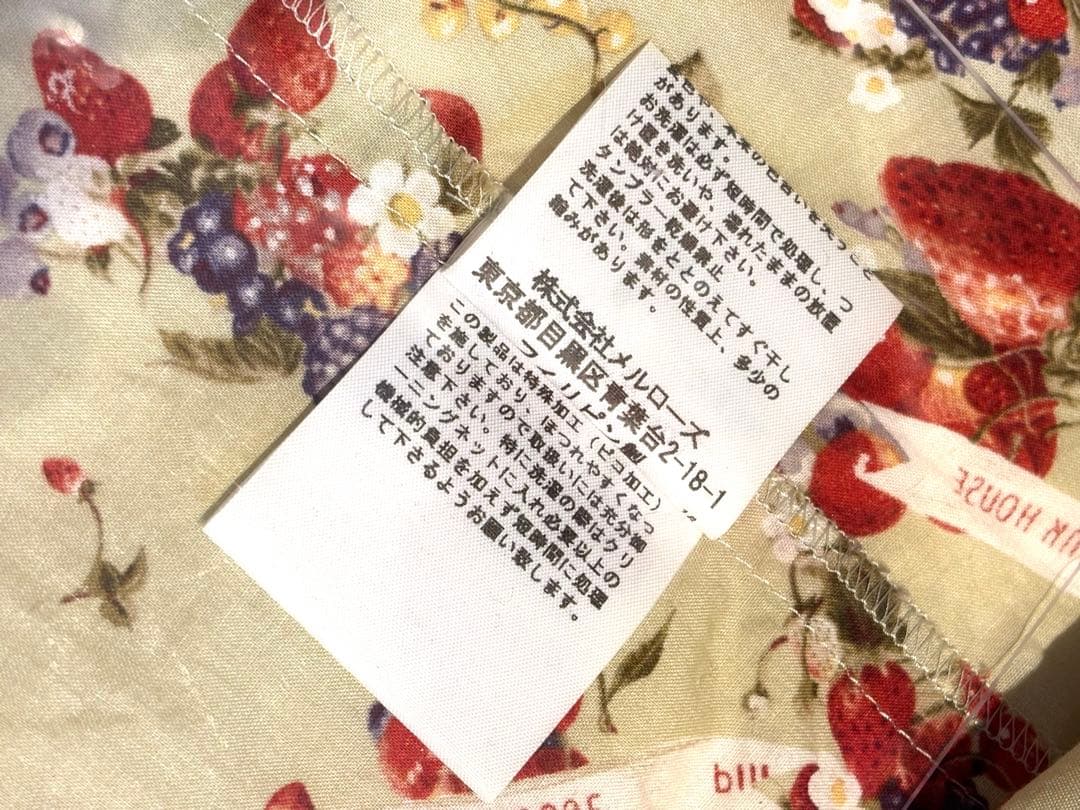 があります。
お洗濯は必ず短時間で処理し、つ
け置き洗いや、濡れたままの放置
は絶対にお避け下さい。
タンブラー乾燥禁止
洗濯後は形をととのえてすぐ干し
て下さい。素材の性質上、多少の
縮みがあります。
株式会社メルローズ
東京都目黒区青葉台2-18-1
フィリピン製
この製品は特殊加工(ピコ加工)
を施しており、ほつれやすくなっ
ておりますので取扱いには充分御
注意下さい。特に洗濯の際はクリ
ーニングネットに入れ必要以上の
機械的負担を加えず短時間に処理
して下さるようお願い致します。
HOUSE